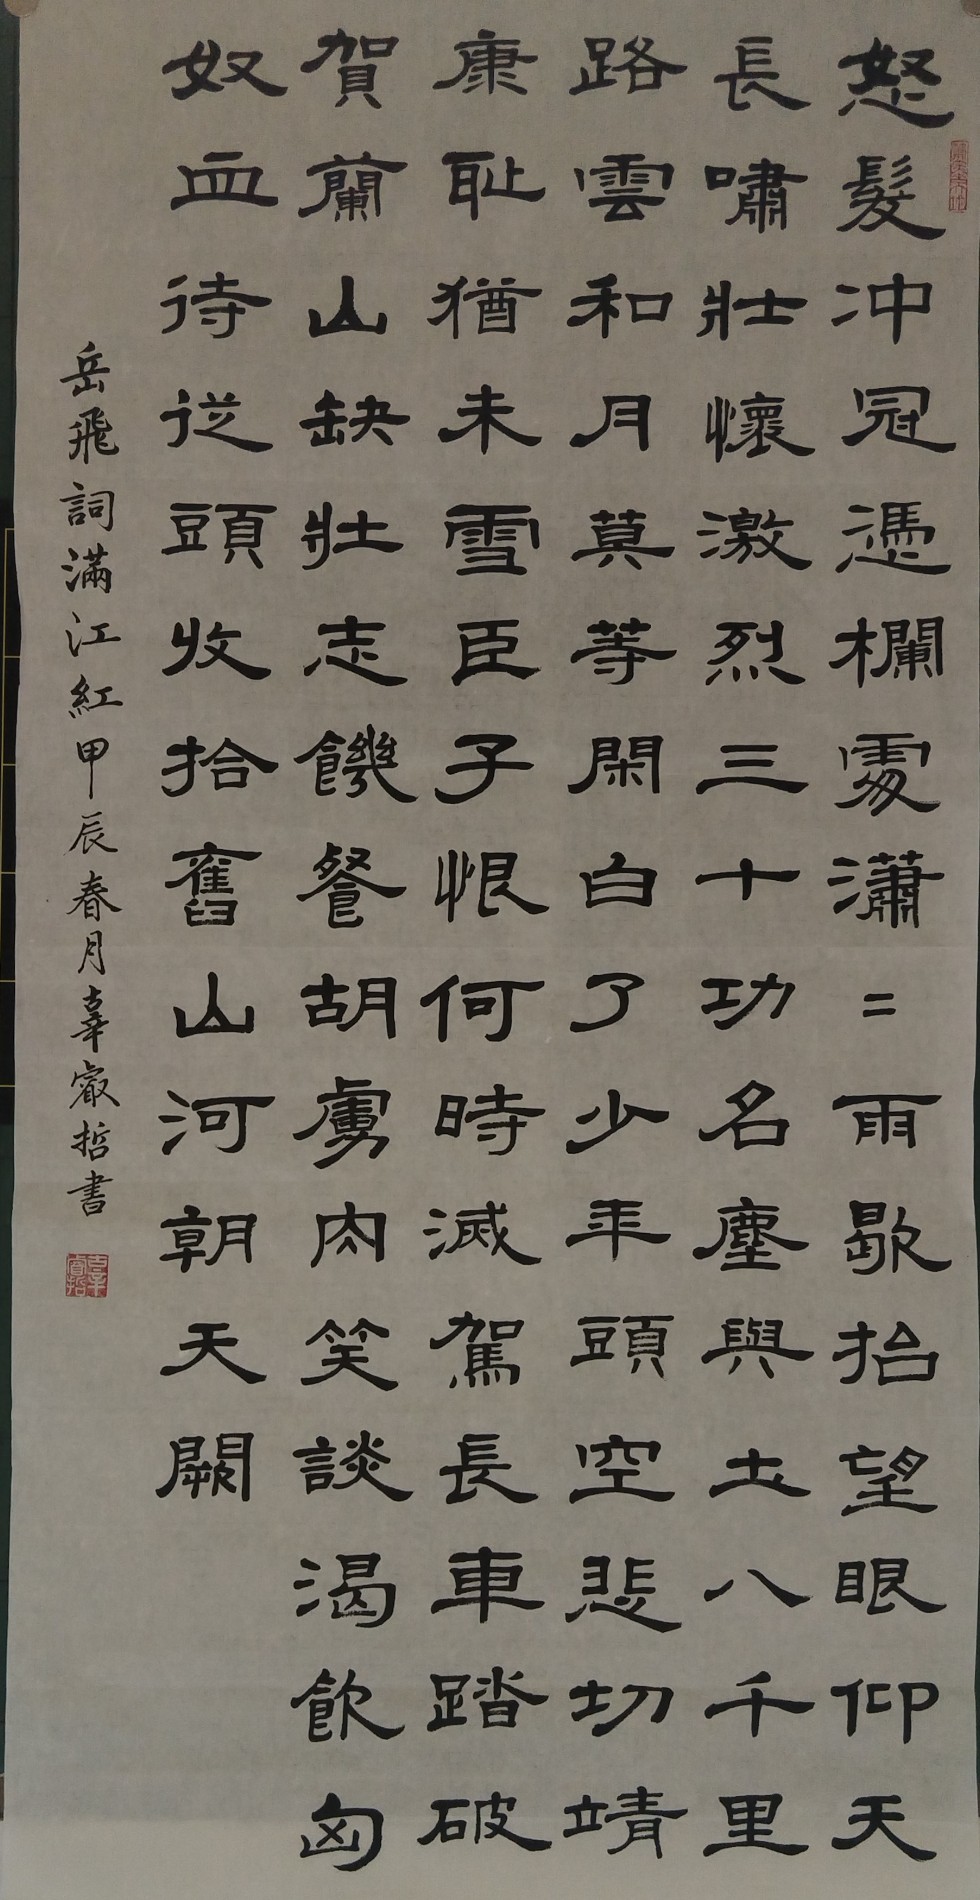 怒髮冲冠憑欄處瀟〻雨歇抬望眼仰天
長嘯壯懷激烈三十功名塵與土八千里
路雲和月莫等閑白了少年頭空悲切靖
康耻猶未雪臣子恨何時滅駕長車踏破
賀蘭山缺壯志饑餐胡虜肉笑談渴飲匈
奴血待從頭收拾舊山河朝天闕
岳飛詞滿江紅甲辰春月辜睿哲書